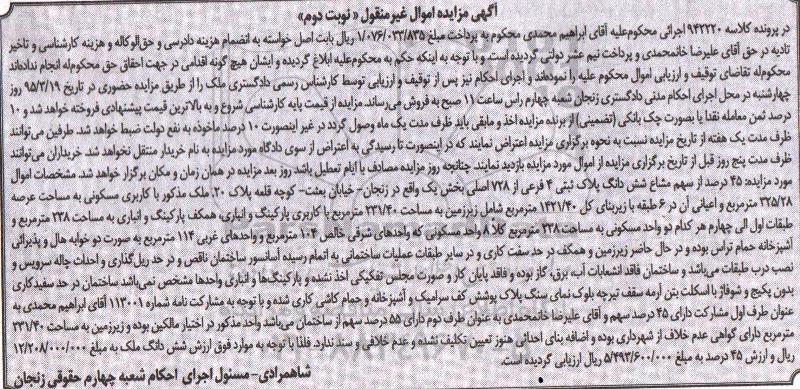 آگهی مزایده اموال غیرمنقول « نوبت دوم»
در پرونده کلاسه ۹۴۲۲۲۰ اجرائی محکوم‌علیه آقای ابراهیم محمدی محکوم به پرداخت مبلغ ۱/۰۷۶/۰۳۳/۸۳۵ ریال بابت اصل خواسته به انضمام هزینه دادرسی و حق‌الوکاله و هزینه کارشناسی و تاخیر
تادیه در حق آقای علیرضا خانمحمدی و پرداخت نیم عشر دولتی گردیده است. و با توجه به اینکه حکم به محکوم‌علیه ابلاغ گردیده و ایشان هیچ گونه اقدامی در جهت احقاق حق محکوم‌له انجام نداده‌اند
محکوم‌له تقاضای توقیف و ارزیابی اموال محکوم علیه را نموده‌اند و اجرای احکام نیز پس از توقیف و ارزیابی توسط کارشناس رسمی دادگستری ملک را از طریق مزایده حضوری در تاریخ ۹۵/۲/۱۹ روز
چهارشنبه در محل اجرای احکام مدنی دادگستری زنجان شعبه چهارم راس ساعت ۱۱ صبح به فروش می‌رساند. مزایده از قیمت پایه کارشناسی شروع و به بالاترین قیمت پیشنهادی فروخته خواهد شد و ۱۰
درصد ثمن معامله نقدا یا بصورت چک بانکی (تضمینی) از برنده مزایده اخذ و مابقی باید ظرف مدت یک ماه وصول گردد در غیر اینصورت ۱۰ درصد ماخوذه به نفع دولت ضبط خواهد شد. طرفین می‌توانند
ظرف مدت یک هفته از تاریخ مزایده نسبت به نحوه برگزاری مزایده اعتراض نمایند که در اینصورت تا رسیدگی به اعتراض از سوی دادگاه مورد مزایده به نام خریدار منتقل نخواهد شد. خریداران می‌توانند
ظرف مدت پنج روز قبل از تاریخ برگزاری مزایده از اموال مورد مزایده بازدید نمایند. چنانچه روز مزایده مصادف با ایام تعطیل باشد روز بعد مزایده در همان زمان و مکان برگزار خواهد شد. مشخصات اموال
مورد مزایده: ۴۵ درصد از سهم مشاع شش دانگ پلاک ثبتی ۴ فرعی از ۷۲۸ اصلی بخش یک واقع در زنجان- خیابان بعثت- کوچه قلمه پلاک ۲۰. ملک مذکور با کاربری مسکونی به مساحت عرصه
۳۲۵/۲۸ مترمربع و اعیانی آن در ۶ طبقه با زیربنای کل ۱۴۲۱/۴۰ مترمربع شامل زیرزمین به مساحت ۲۳۱/۴۰ مترمربع با کاربری پارکینگ و انباری، همکف پارکینگ و انباری به مساحت ۲۳۸ مترمربع و
طبقات اول الی چهارم هر کدام دو واحد مسکونی به مساحت ۲۳۸ مترمربع کلا ۸ واحد مسکونی که واحدهای شرقی خالص ۱۰۴ مترمربع و واحدهای غربی ۱۱۴ مترمربع به صورت دو خوابه هال و پذیرائی
آشپزخانه حمام تراس بوده و در حال حاضر زیرزمین و همکف در حد سفت کاری و در سایر طبقات عملیات ساختمانی به اتمام رسیده آسانسور ساختمان ناقص و در حد ریل‌گذاری و احداث چاله سرویس و
نصب درب طبقات می‌باشد و ساختمان فاقد انشعابات آب، برق، گاز بوده و فاقد پایان کار و صورت مجلس تفکیکی اخذ نشده و پارکینگ‌ها و انباری واحدها مشخص نمی‌باشد ساختمان در حد سفیدکاری
بدون پکیج و شوفاژ با اسکلت بتن آرمه سقف تیرچه بلوک نمای سنگ پلاک پوشش کف سرامیک و آشپزخانه و حمام کاشی کاری شده و با توجه به مشارکت نامه شماره ۱۱۳۰۰۱ آقای ابراهیم محمدی به
عنوان طرف اول مشارکت دارای ۴۵ درصد سهم و آقای علیرضا خانمحمدی به عنوان طرف دوم دارای ۵۵ درصد سهم از ساختمان می‌باشد واحد مذکور در اختیار مالکین بوده و زیرزمین به مساحت ۲۳۱/۴۰
مترمربع دارای گواهی عدم خلاف از شهرداری بوده و اضافه بنای احداثی هنوز تعیین تکلیف نشده و عدم خلافی و سند ندارد. فلذا با توجه به موارد فوق ارزش شش دانگ ملک به مبلغ ۱۲/۲۰۸/۰۰۰/۰۰۰
ریال و ارزش ۴۵ درصد به مبلغ ۵/۴۹۳/۶۰۰/۰۰۰ ریال ارزیابی گردیده است.
شاهمرادی- مسئول اجرای احکام شعبه چهارم حقوقی زنجان